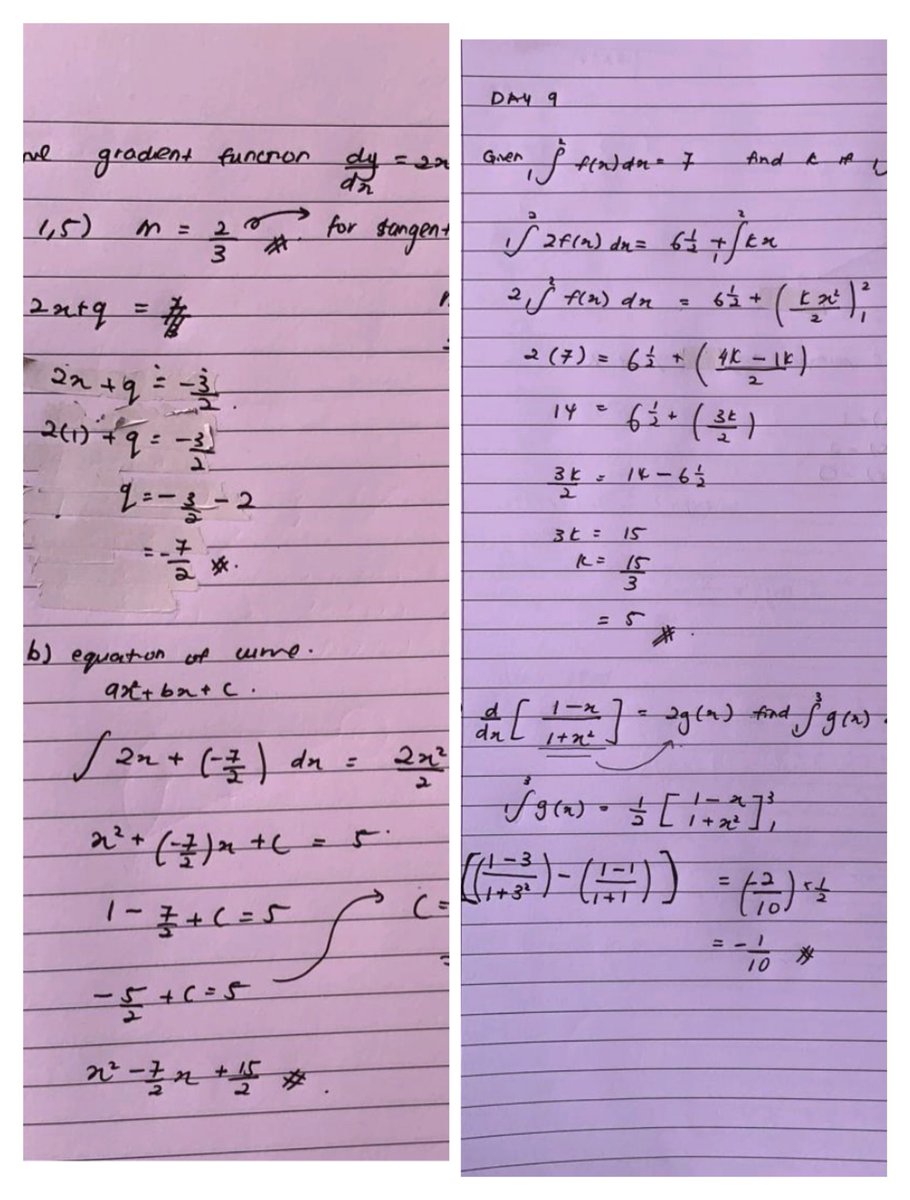 gradient function dy/dx = 2x
1,5) m = 2/3 for tangent
2x+q =
2x + q = -3/2.
2(1) + q = -3/2
q = -3/2 - 2
= -7/2 .
b) equation of curve.
ax²+bx+c.
∫ 2x + (-7/2) dx = 2x²/2
x² + (-7/2)x + C = 5
1 - 7/2 + C = 5 C =
-5/2 + C = 5 =
x² - 7/2 x + 15/2 .
DAY 9
Given ₁∫² f(x) dx = 7 find k if
₁∫² 2f(x) dx = 6½ + ₁∫² kx
2 ₁∫² f(x) dx = 6½ + (kx²/2)₁²
2(7) = 6½ + (4k - 1k/2)
14 = 6½ + (3k/2)
3k/2 = 14 - 6½
3k = 15
k = 15/3
= 5 .
d/dx [1-x/1+x²] = 2g(x) find ∫³ g(x).
₁∫³ g(x) = ½ [1-x/1+x²]₁³
[(1-3/1+3²) - (1-1/1+1)] = (-2/10) × ½
= -1/10